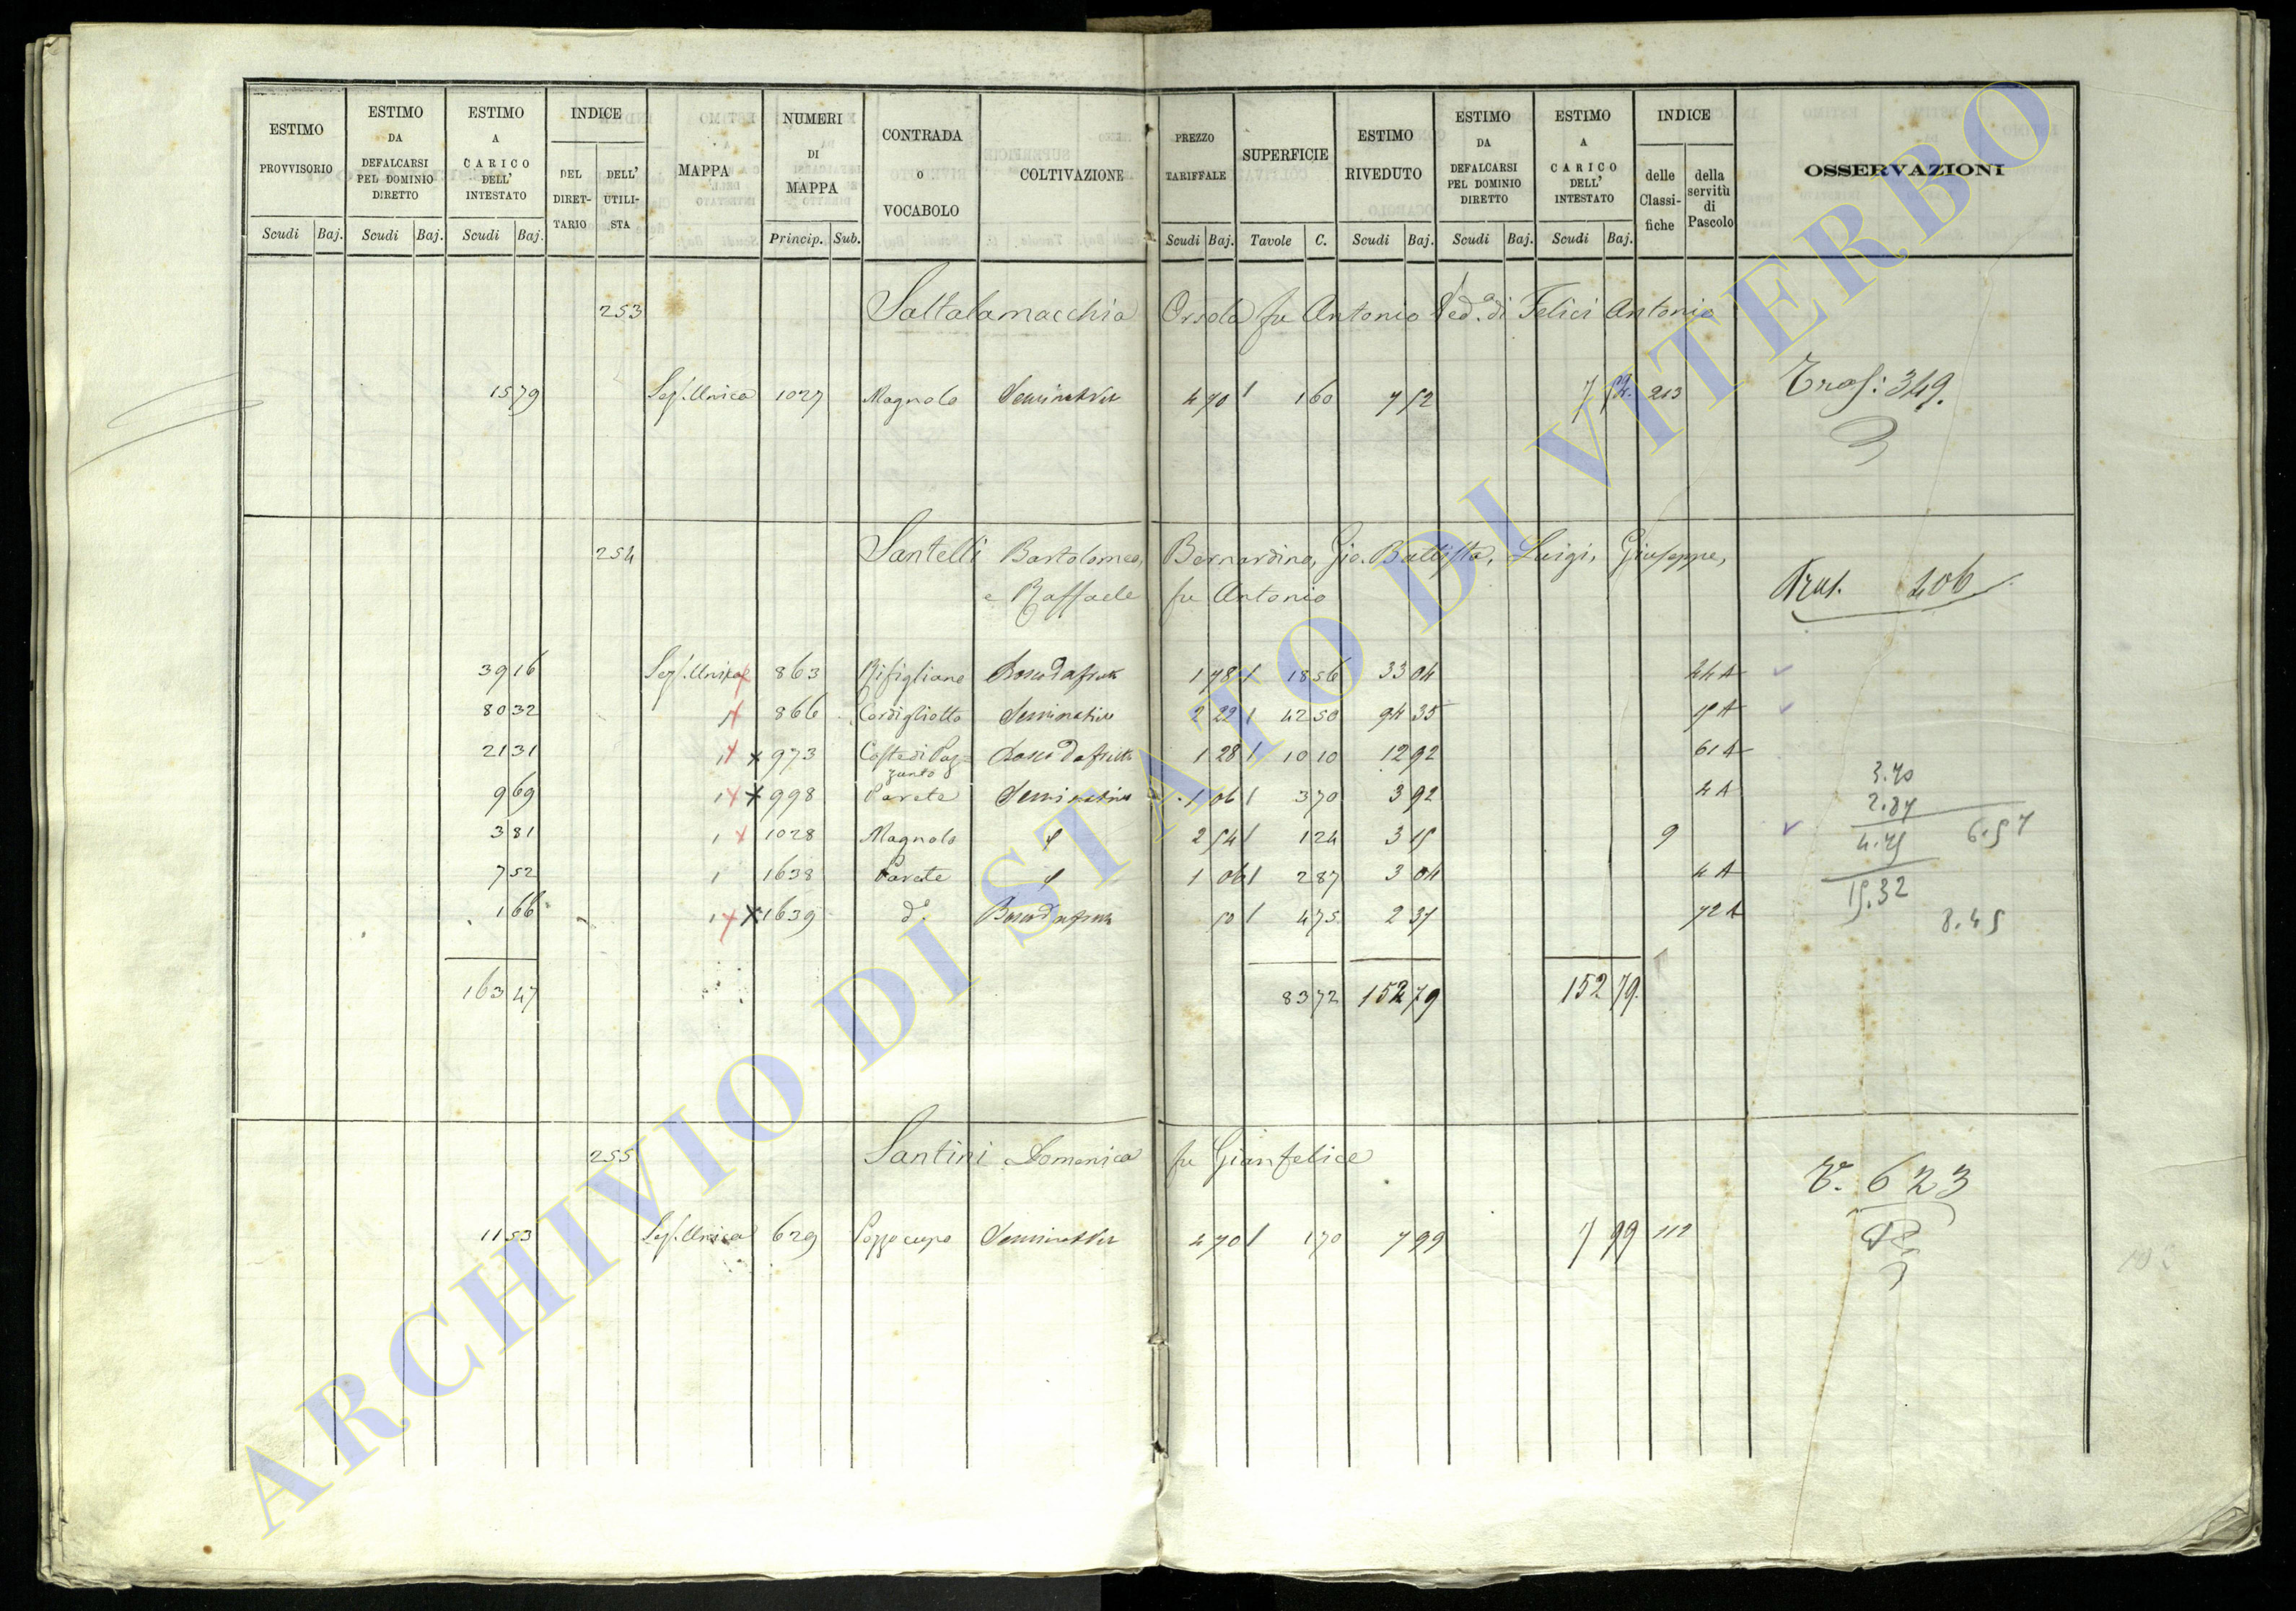 ESTIMO PROVVISORIO
ESTIMO DA DEFALCARSI PEL DOMINIO DIRETTO
ESTIMO A CARICO DELL' INTESTATO
INDICE
DEL DIRET-TARIO
DELL' UTILI-STA
MAPPA
NUMERI DI MAPPA
CONTRADA O VOCABOLO
COLTIVAZIONE
PREZZO TARIFFALE
SUPERFICIE
ESTIMO RIVEDUTO
ESTIMO DA DEFALCARSI PEL DOMINIO DIRETTO
ESTIMO A CARICO DELL' INTESTATO
INDICE
delle Classi-fiche
della servitù di Pascolo
OSSERVAZIONI
Scudi Baj. Scudi Baj. Scudi Baj. Princip. Sub. Scudi Baj. Tavole C. Scudi Baj. Scudi Baj. Scudi Baj.
253 Saltalamacchia Orsola fu Antonio Ved.a di Felici Antonio
15 79 Sez. Unica 1027 Magnolo Seminat Vit 4 70 1 60 7 52 7 52. 213 Tras: 349.
254 Santelli Bartolomeo, Bernardino, Gio. Battista, Luigi, Giuseppe,
e Raffaele fu Antonio Tras. 406
39 16 Sez. Unica 863 Rifigliano Bosco da frutto 1 78 18 56 33 04 44 A
80 32 866 Cordigliotto Seminativo 2 22 42 50 94 35 15 A
21 31 973 Coste di Poz-zunto Bosco da frutto 1 28 10 10 12 92 61 A
9 69 998 Parete Seminativo 1 06 3 70 3 92 4 A
3 81 1028 Magnolo 2 54 1 24 3 15 9
7 52 1638 Parete 1 06 2 87 3 04 4 A
1 66 1639 d.o Bosco da frutto 50 4 75 2 37 72 A
3.70
2.87
6.57
4.75
15.32
8.45
163 47 83 72 152 79 152 79.
255 Santini Domenica fu Gianfelice
T. 623
11 53 Sez. Unica 629 Pozzo cupo Seminat Vit 4 70 1 70 7 99 7 99 212
ARCHIVIO DI STATO DI VITERBO